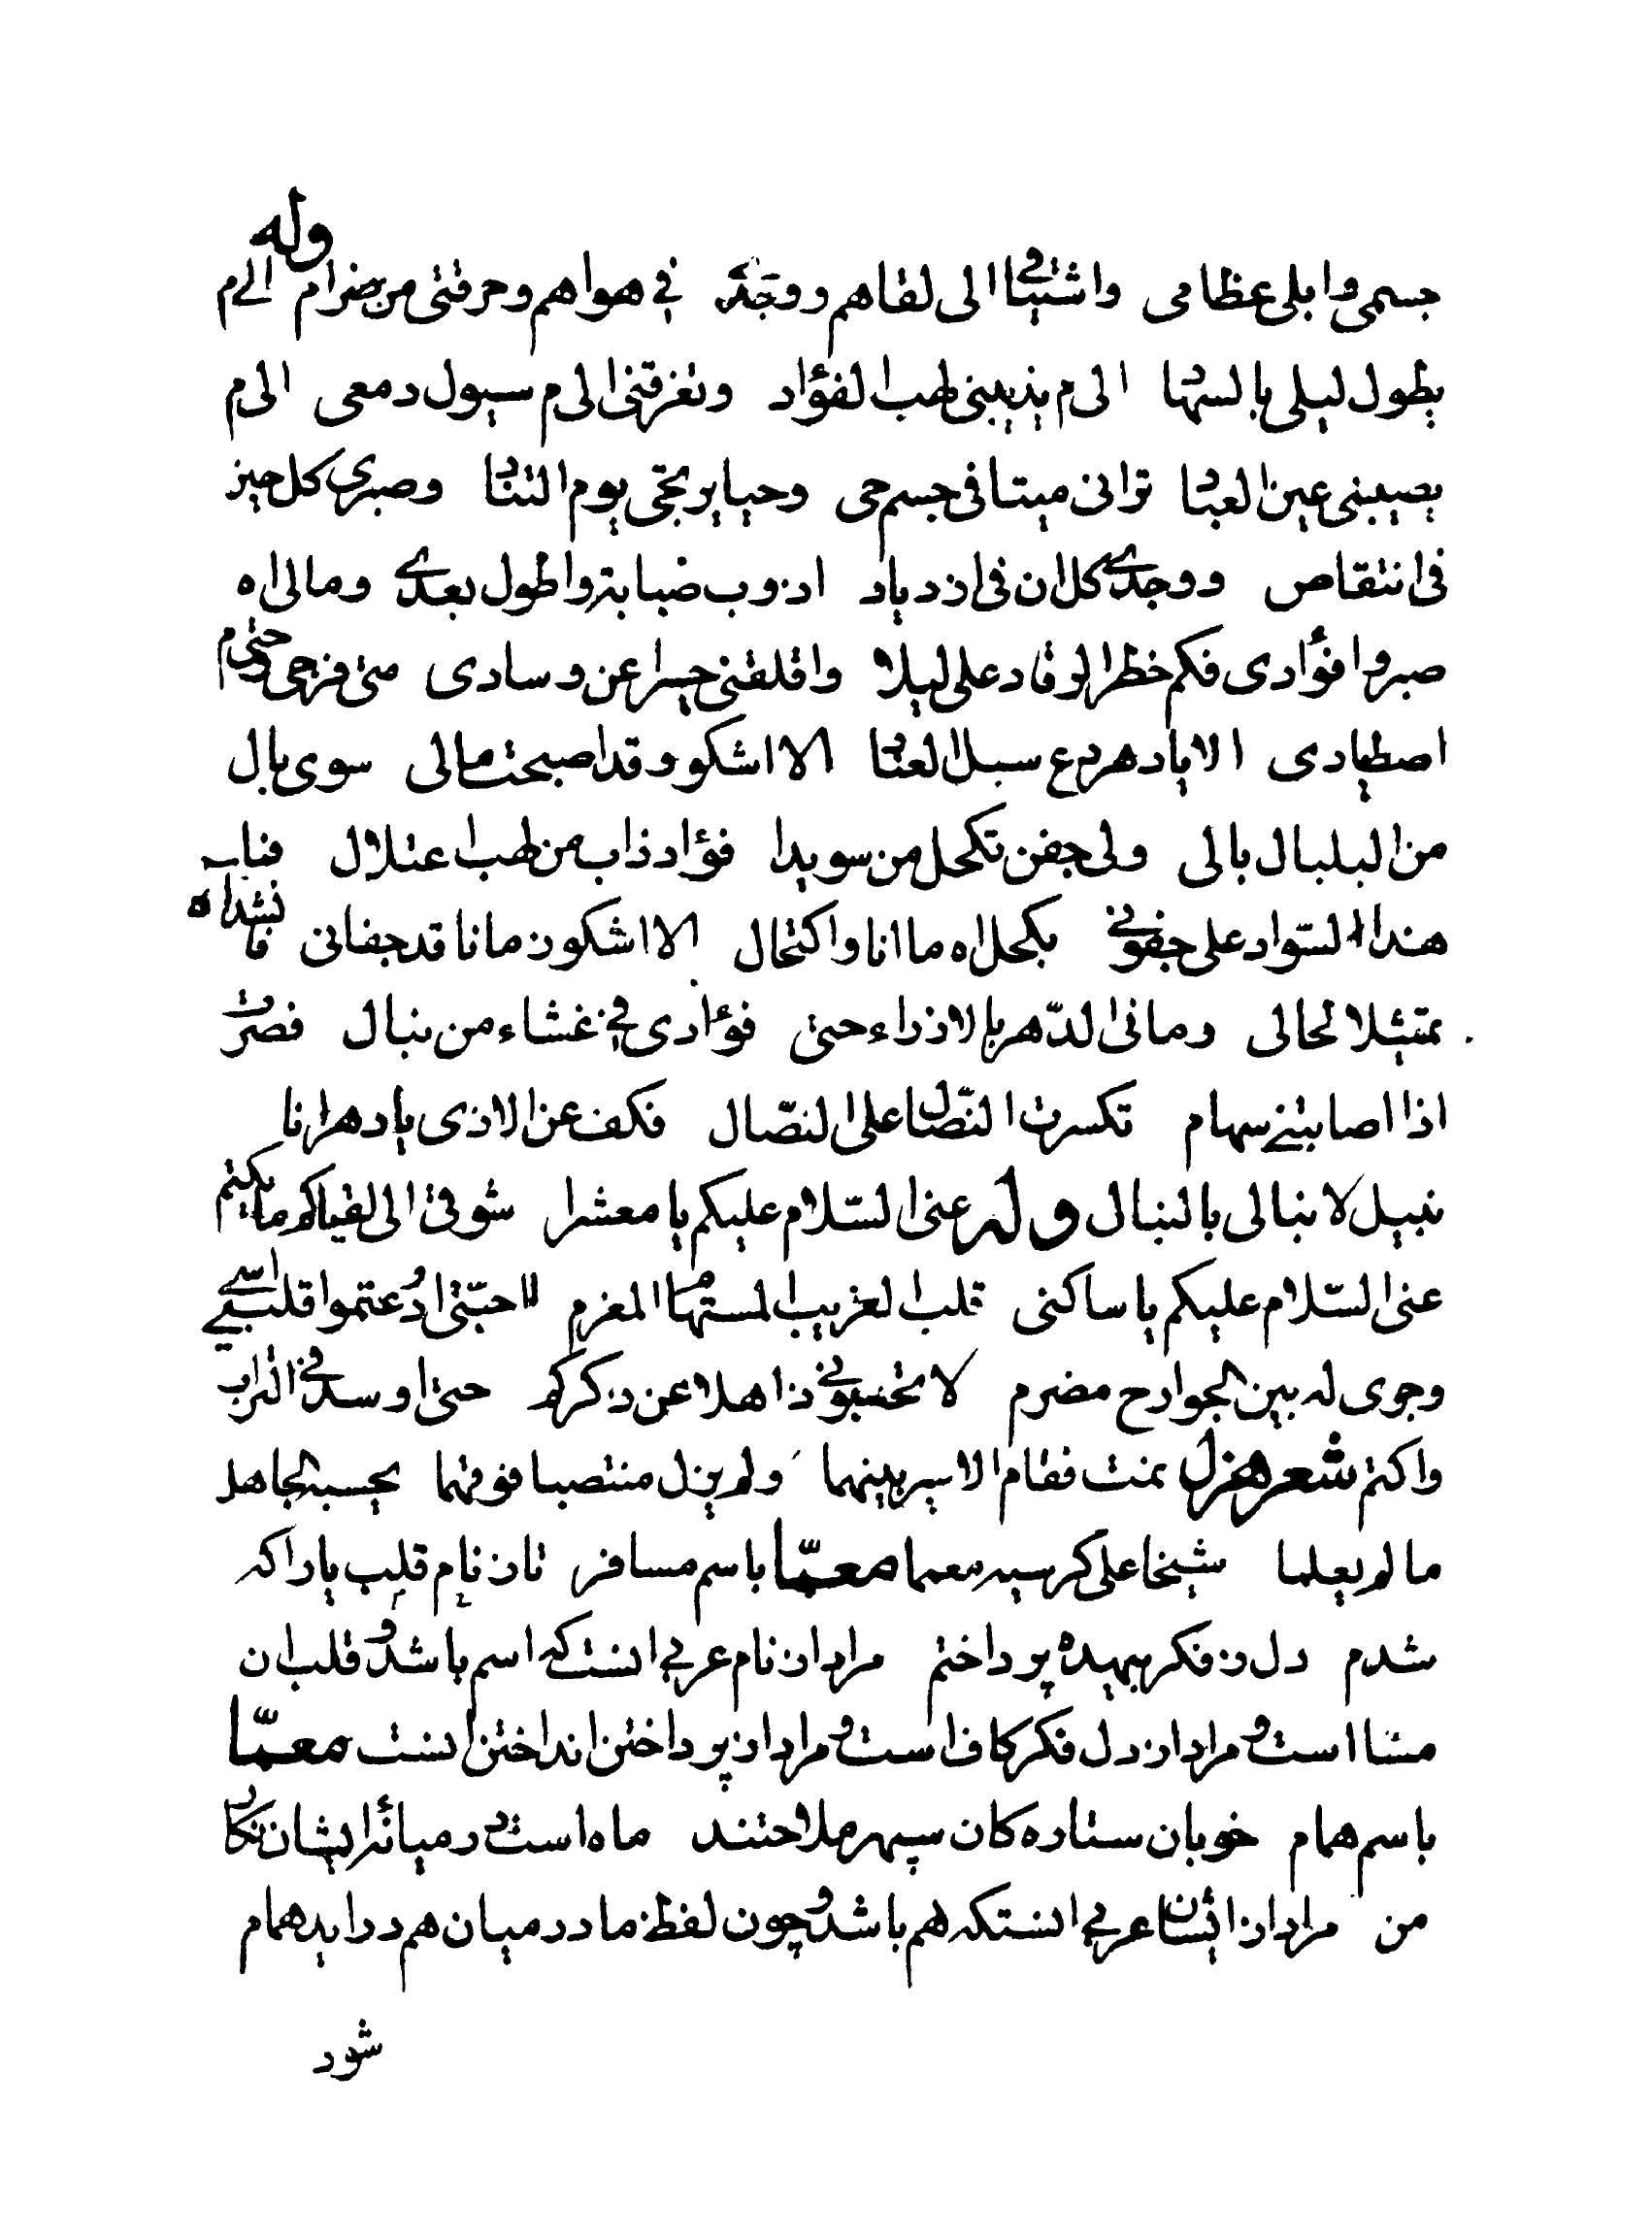 جسمی وابلی عظامی واشتیاقی الی لقاهم ووجدی فی هواهم وحرقتی من ضرام وله الی م
بطول لیلی بالسهاد الی م یذیبنی لهب الفؤاد وتغرقنی الی م سیول دمعی الی م
یصیبنی عین العباد ترانی میتا فی جسم حی وحیا یرتجی یوم التناد وصبری کل حین
فی انتقاص ووجدی کل ان فی ازدیاد اذوب صبابة واطول بعدی ومالی اه
صبر وا فؤادی فکم خطر الوقاد علی لیلا واقلقنی حسیرا عن وسادی متی فرجی وحتی م
اصطیادی الا یا دهر دع سبل العناد الا اشکو وقد اصبحت مالی سوی بال
من البلبال بالی ولی جفن تکحل من سویدا فؤاد ذاب من لهب اعتلال فناب
هذا السواد علی جفونی بکحل اه ما انا واکتحال الا اشکو زمانا قد جفانی فانشد اه
تمثیلا لحالی ومانی الدهر بالارزاء حتی فؤادی فی غشاء من نبال فصرت
اذا اصابتنی سهام تکسرت النصال علی النصال فکف عن الاذی یا دهر انا
نبیل لا نبالی بالنبال وله عنی السلام علیکم یا معشرا شوقی الی لقیاکم ما یکتم
عنی السلام علیکم یا ساکنی قلب الغریب المستهام المغرم احبتی ادعتموا قلبی اسی
وجوی له بین الجوارح مضرم لا تحسبونی ذاهلا عن ذکرکم حتی اوسد فی التراب
واکتم شعر هزل نمت فقام الایر بینهما ولم یزل منتصبا فوقهما یحسبه الجاهل
مالم یعلما شیخا علی کرسیه معمما معمّا باسم مسافر تا از نام قلب یار اکه
شدم دل ز فکر بیهده پرداختم مراد از نام عربی انست که اسم باشد و قلب ان
مسا است و مراد از دل فکر کاف است و مراد از پرداختن انداختن انست معمّا
باسم همام خوبان ستاره کان سپهر ملاحتند ماه است در میانهٔ ایشان نکار
من مراد از ایشان عربی انستکه هم باشد و چون لفظ ما در میان هم دراید همام
شود